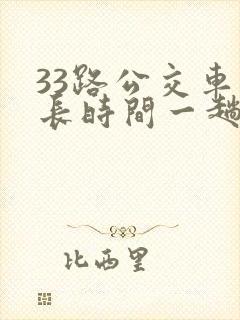 33路公交車
長時間一趟
比西里